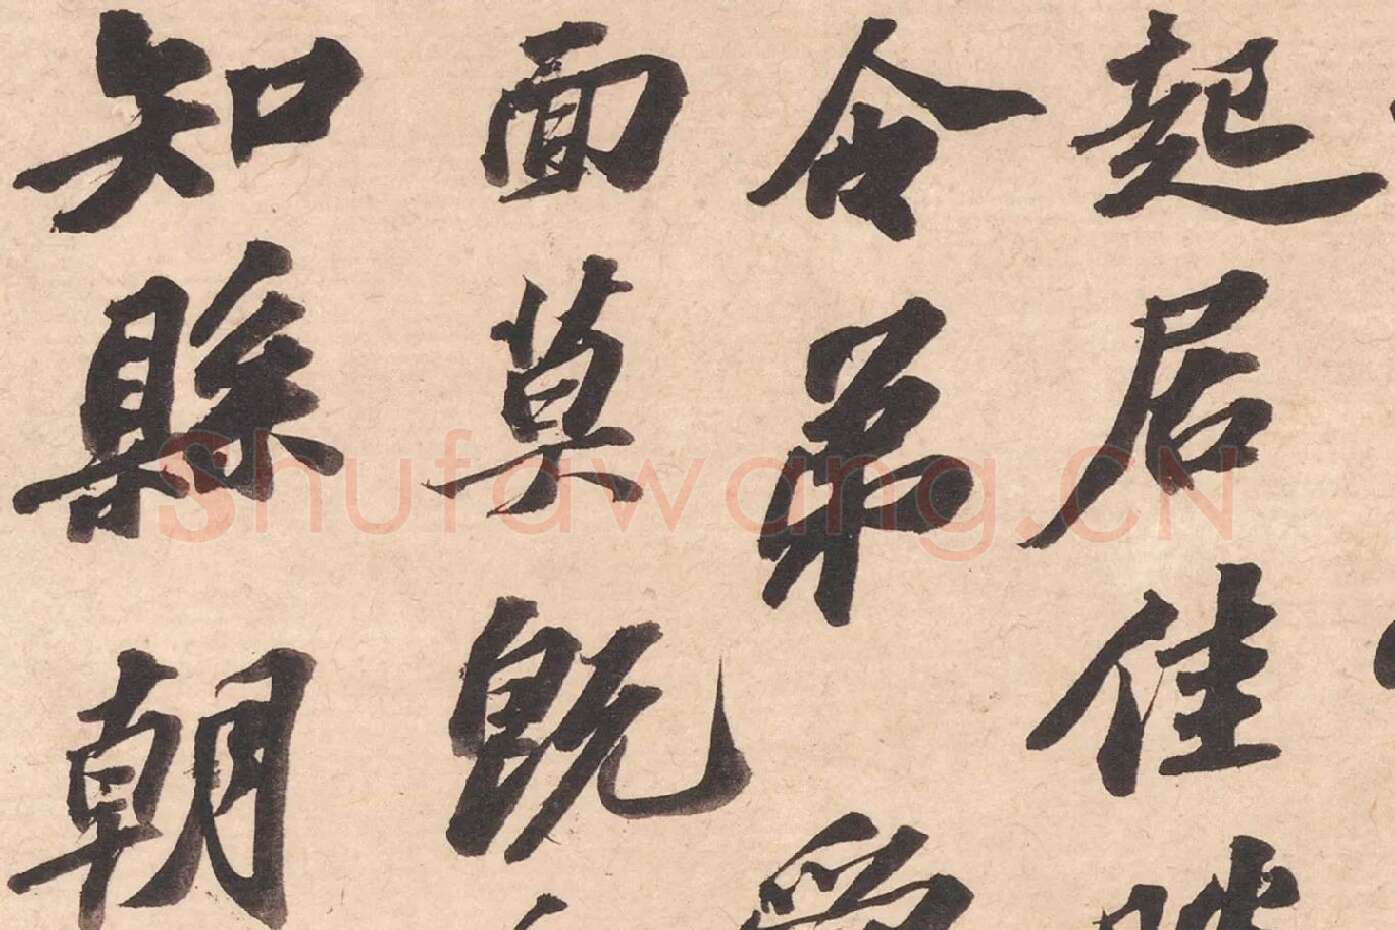 起居佳勝
舍弟
面莫既
知縣朝
Shufawang.CN